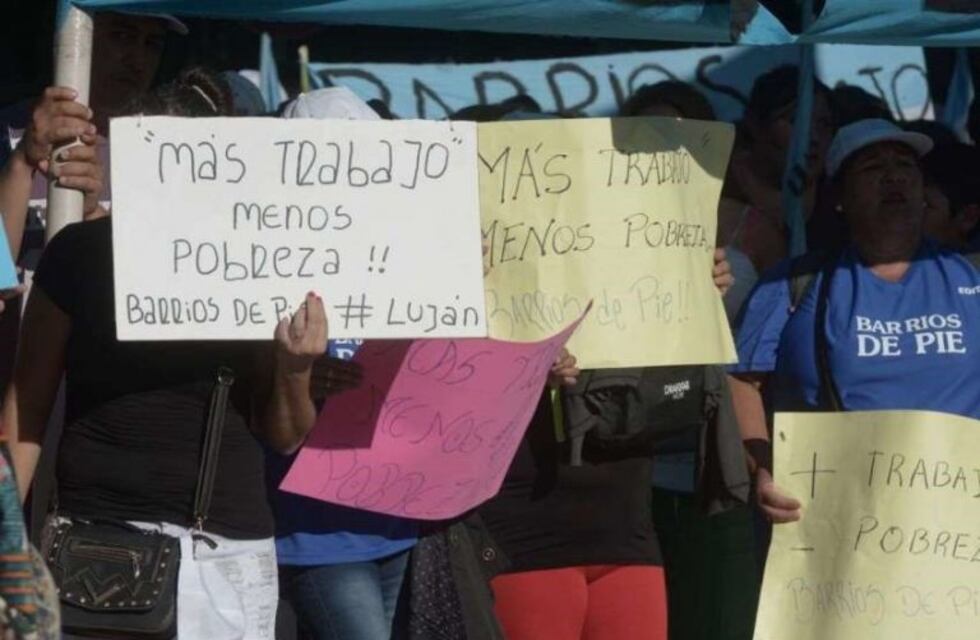 BARRIOS
"MÁS TRABAJO"
MENOS
POBREZA !!
BARRIOS DE PIE # LUJÁN
MÁS TRABAJO
MENOS POBREZA
BARRIOS de PIE!!
MÁS
MENOS
POBREZ
BARRIOS
DE PIE
+ TRABAJ
- POBREZ
BARRIOS DE PI